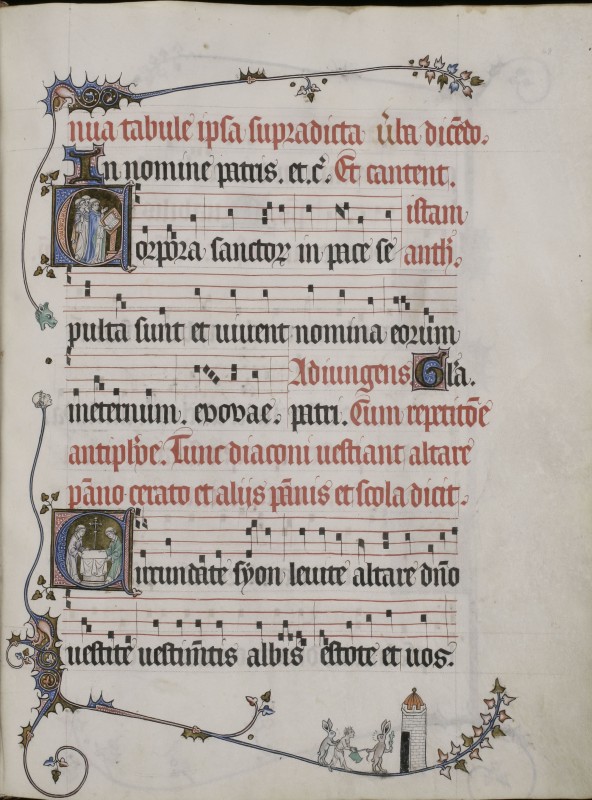 nua tabule ipsa supradicta ūba dicēdo.
In nomine patris. et.c̓. Et cantent.
istam
Corpora sanctoꝝ in pace se anth̄.
pulta sunt et uiuent nomina eorum
Adiungens Gl̄a.
ineternum. evovae. patri. Cum repetitōe
antiph̄e. Tunc diaconi uestiant altare
pāno cerato et alijs pānis et scola dicit.
Circundate syon leuite altare dn̄o
uestite uestim̄tis albis estote et uos.